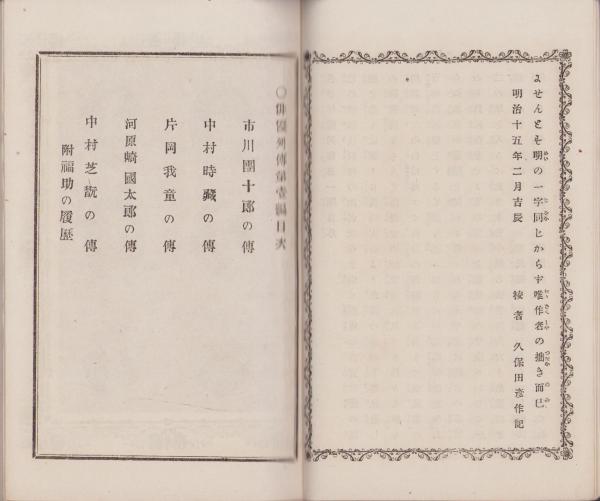 よせんとそ明の一字同じからず唯作者の拙き而已
明治十五年二月吉辰 桉者 久保田彦作記
〇俳優列傳第壹編目次
市川團十郎の傳
中村時藏の傳
片岡我童の傳
河原崎國太郎の傳
中村芝翫の傳
附福助の履歴